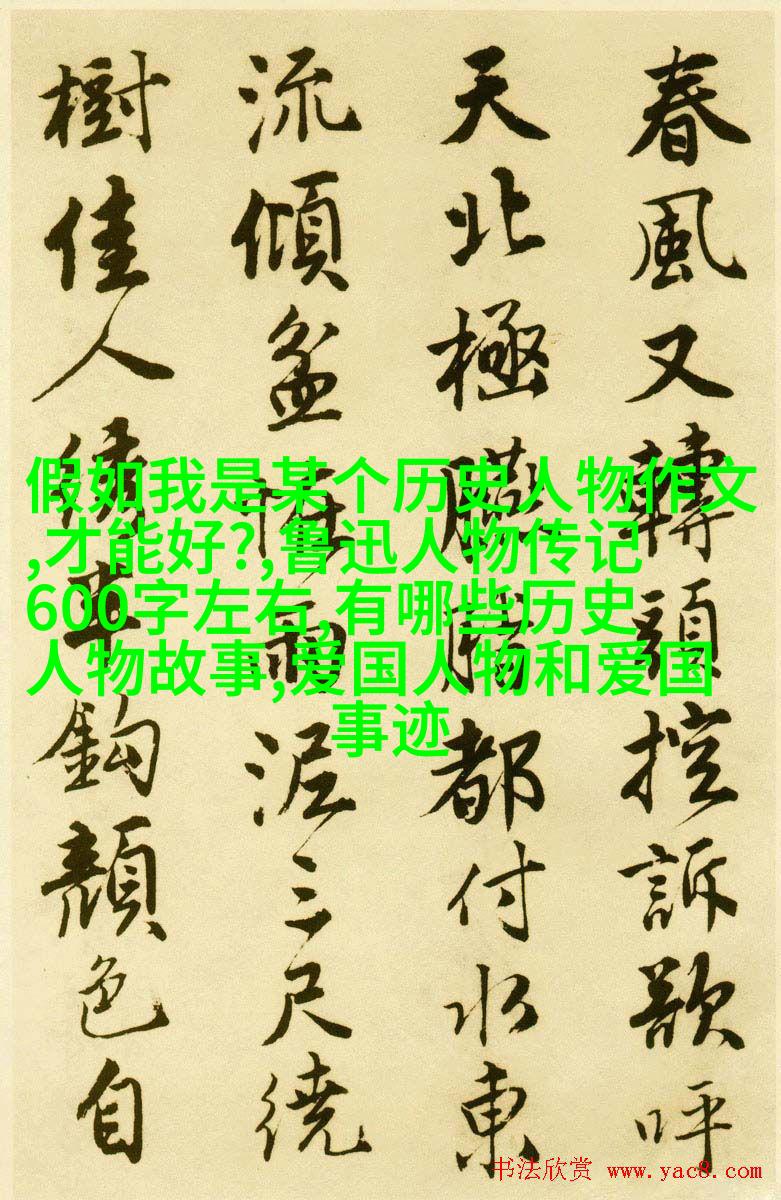 假如我是某个历史人物作文
,才能好?,鲁迅人物传记
600字左右,有哪些历史
人物故事,爱国人物和爱国
事迹
春風又轉頭控訴歌呼
天北極都付水東
流傾盆雨泥三尺繞
樹佳人鈎顏色自
书法欣赏 www.yac8.com